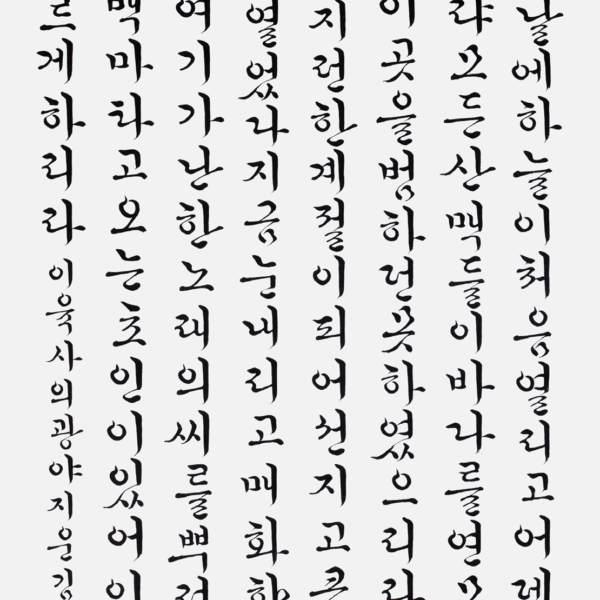 날에하늘이처음열리고어데
랴모든산맥들이바다를연모
이곳을범하던못하였으리라
지런한계절이되어선지고큰
열었다지금눈내리고매화향
여기가난한노래의씨를뿌려
백마타고오는초인이있어이
르게하리라 이육사의광야지운김